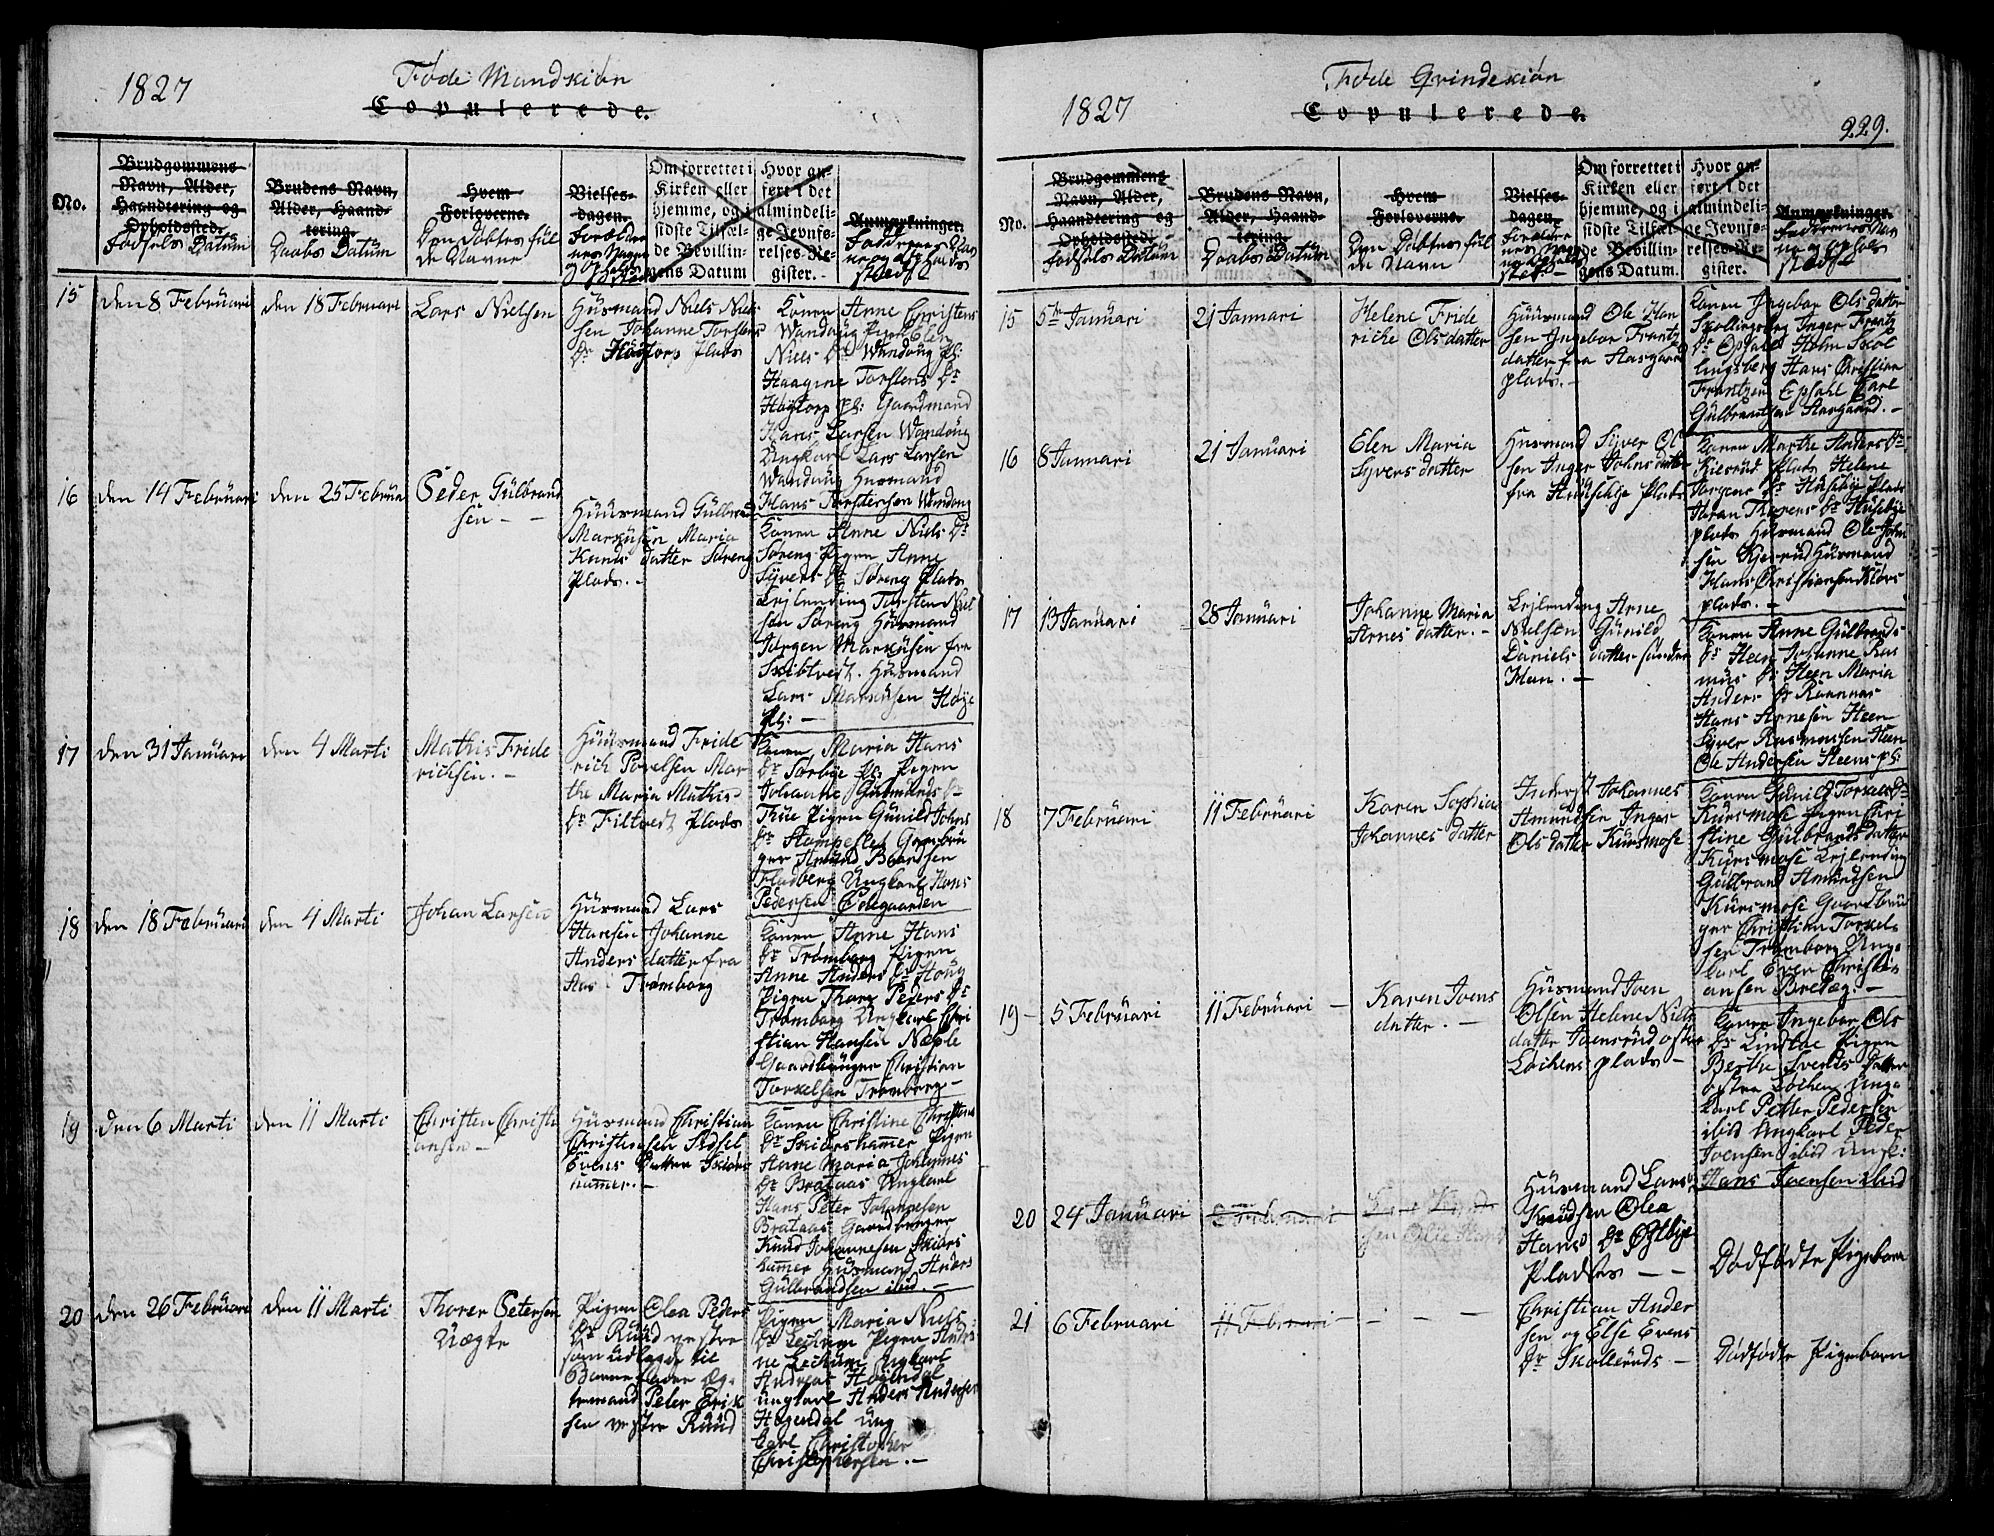 1827
Føde Mandkiøn
Copulerede.
No.
Brudgommens
Navn, Alder,
Haandtering og
Opholdssted.
Fødsels Datum
Brudens Navn,
Alder, Haand-
tering.
Daabs Datum
Hvem
Forloverne.
Den Døbtes ful
de Navne
Vielses-
dagen.
Om forrettet i
Kirken eller
hjemme, og i
sidste Tilfæl-
de Bevillin-
gens Datum
Hvor an-
ført i det
almindeli-
ge Jevnfø-
relses-Re-
gister.
Anmærkninger.
15
den 8 Februari
den 18 Februari
Lars Nielsen
Huusmand Niels Niel
sen Johanne Torstens
Dr Høytorp Plads
Konen Anne Christens
Wandüg Pigen Elen
Niels Dr Wandüg Pl:
Haagine Torstens Dr
Høytorp Pl: Gaardmand
Hans Larsen Wandüg
Ungkarl Lars Larsen
Wandüg Husmand
Hans Torstersen Wandüg
16
den 14 Februari
den 25 Februa
Peder Gülbrand
sen - -
Huusmand Gülbrand
Markusen Maria
Knuds datter Søreng
plads. -
Konen Anne Niels Dr
Søreng Pigen Anne
Syverts Dr Søreng Plads
Lejlending Torsten Niel
sen Søreng Huusmand
Jørgen Markusen fra
Skibtvedt. Huusmand
Lars Markusen Høye
Pl: -
17
den 31 Januari
den 4 Marti
Mathis Fride
richsen. -
Huusmand Fride
rich Povelsen Mar
the Maria Mathis-
Dr Filtvedt Plads
Konen Maria Hans
Dr Sørbye Pl: Pigen
Johanne Gulmunds D-
Thue Pigen Gunild Johns
Dr Stampeflet Gaardbru
ger Amund Baardsen
Fladberg Ungkarl Hans
Pedersen Ødegaarden
18
den 18 Februari
den 4 Marti
Johan Larsen
Huusmand Lars
Hansen Johanne
Anders datter fra
Aas - Trømborg
Konen Anne Hans
Dr Trømborg Pigen
Anne Anders Dr Houg
Pigen Thore Peders Dr
Trømborg Ungkarl Chri
stian Hansen Næple
Gaardbruger Christian
Torkelsen Trømborg -
19
den 6 Marti
den 11 Marti
Christen Christi
ansen -
Huusmand Christian
Christiansen Sidsel
Evens Datter Skiørs
hammer. -
Konen Christine Christens
Dr Skiørshammer Pigen
Anne Maria Johannes
Dr Brataas Ungkarl
Hans Peter Johannesen
Brataas Gaardbruger
Knud Johannesen Skiørs
hammer Huusmand Anders
Gülbrandsen ibid. -
20
den 26 Februari
den 11 Marti
Thorer Petersen
Uægte
Pigen Olea Peders
Dr Ruud vestre
som udlagde til
Barnefader Æg-
temand Peter Erik
sen vestre Ruud
Pigen Maria Niels
Dr Lechum Pigen Han
ne Lechum Ungkarl
Andreas Høgendal
ungkarl Anders Andersen
Høgendal Ung
karl Christopher
Christophersen. -
1827
Føde Qvindekiøn
Copulerede.
229.
No.
Brudgommens
Navn, Alder,
Haandtering og
Opholdssted.
Fødsels Datum
Brudens Navn,
Alder, Haand-
tering.
Daabs Datum
Hvem
Forloverne.
Den Døbtes ful
de Navn
Vielses-
dagen.
Om forrettet i
Kirken eller
hjemme, og i
sidste Tilfæl-
de Bevillin-
gens Datum.
Hvor an-
ført i det
almindeli-
ge Jevnfø-
relses-Re-
gister.
Anmærkninger.
15
5te Januari
21 Januari
Helene Fride
riche Olsdatter
Huusmand Ole Han
sen Ingebor Frantz
datter fra Aasgaard
plads. -
Konen Ingebor Olsdatter
Skollingsberg Inger Frantz
Dr Opsahl Holm Skol
lingsberg Hans Christian
Frantzen Epsahl Karl
Gülbrandsen Aasgaard. -
16
8 Januari
21 Januari
Elen Maria
Syvers datter
Husmand Syver Ol
sen Inger Johns datter
fra Plads
Konen Marthe Anders Dr
Kierrud Plads Helene
Jørgens Dr Husebye Plads
Karen Thorens Dr Husebye
plads Husmand Ole John
sen Kjerrud Huusmand
Hans Christiansen Kløvs
plads. -
17
13 Januari
28 Januari
Johanne Maria
Arnes datter. -
Lejlending Arne
Nielsen Günild
Daniels datter søndre
Heen. -
Konen Anne Gülbrands
Dr Heen Johanne Ras
mus Dr Heen Maria
Anders Dr Raannas
Hans Arnesen Heen
Syver Rasmussen Heen
Ole Andersen Heens pl:
18
7 Februari
11 Februari
Karen Sophia
Johannes datter
Inderst Johannes
Amundsen Inger
Ols datter Kürsmose
Konen Gunild Torkels Dr
Kürsmose Pigen Chri
stine Gülbrands datter
Kürsmose Lejlending
Gülbrand Amundsen
Kürsmose Gaardbru
ger Christian Torkel
sen Trømborg Ung-
karl Even Christi
ansen Bredæg. -
19 -
5 Februari
11 Februari -
Karen Ivens
datter. -
Huusmand Iven
Olsen Helene Niels
datter Ivensrud østre
Løchens plads -
Konen Ingebor Ols
Dr Lindtoe Pigen
Bertha Svends Datter
østre Løchen Ung-
karl Petter Pedersen
ibid Ungkarl Peder
Ivensen ibid Ungk:
Hans Ivensen ibid
20
24 Januari
Huusmand Lars
Knudsen Olea
Hans Dr Østbye
Pladses - -
Dødfødte Pigebarn
21
6 Februari
11 Februari - - - -
Christian Ander
sen og Else Evens
Dr Skollerüds -
Dødfødte Pigebarn